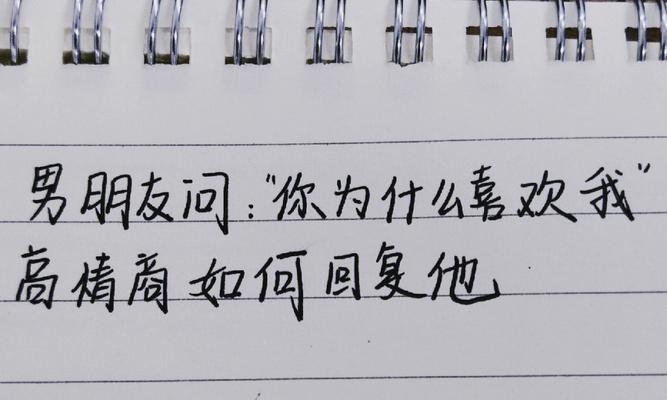 男朋友问:"你为什么喜欢我"
高情商如何回复他